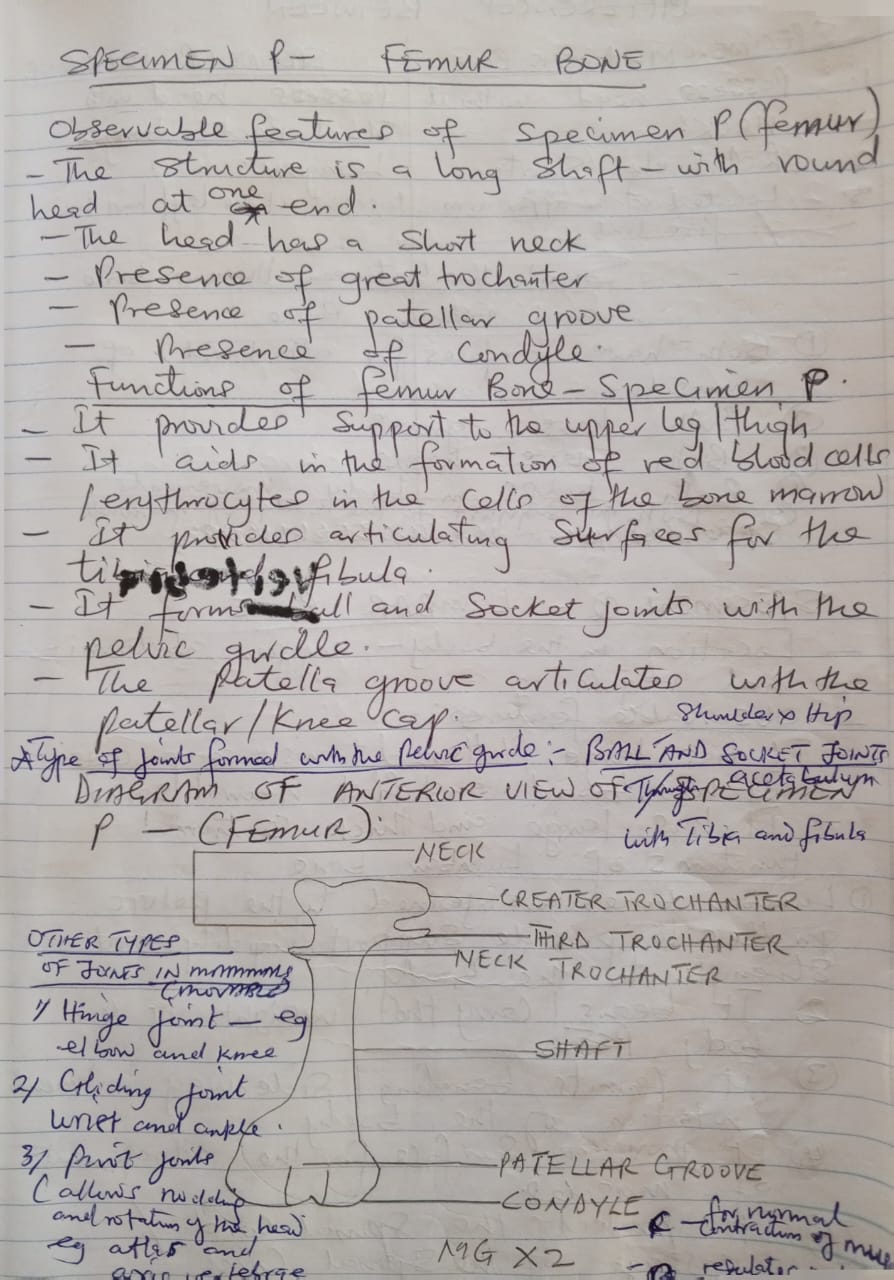 SPECIMEN P - FEMUR BONE
Observable features of Specimen P (femur)
- The structure is a long shaft - with round
head at one end.
- The head has a short neck
- Presence of great trochanter
- Presence of patellar groove
- Presence of Condyle.
Functions of femur Bone - Specimen P.
- It provides Support to the upper leg/thigh
- It aids in the formation of red blood cells
/erythrocytes in the cells of the bone marrow
- It provides articulating Surfaces for the
fibula.
- It forms ball and Socket joints with the
pelvic girdle.
- The Patella groove articulates with the
patellar/Knee cap.
Shoulder & Hip
Type of joints formed with the Pelvic girdle :- BALL AND SOCKET JOINTS
acetabulum
DIAGRAM OF ANTERIOR VIEW OF SPECIMEN
P - (FEMUR):
with Tibia and fibula
NECK
CREATER TROCHANTER
THIRD TROCHANTER
NECK TROCHANTER
SHAFT
PATELLAR GROOVE
CONDYLE
MG X2
OTHER TYPES
OF JOINTS IN MAMMALS
(MOVABLE)
1/ Hinge joint - eg
elbow and knee
2/ Gliding joint
wrist and ankle.
3/ Pivot joints
(allows nodding
and rotation of the head
eg atlas and
axis vertebrae
- for normal
contraction of
regulator